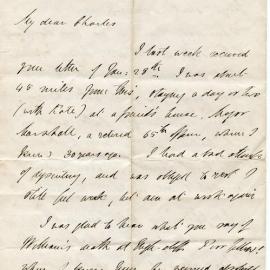 My dear Charles
I last week received
your letter of Jany 28th. I was about
45 miles from this, staying a day or two
(with Kate) at a friend's house, Major
Marshall, a retired 65th man, whom I
knew 30 years ago. I had a bad attack
of dysentery, and was obliged to rest
last week, but am at work again
I was glad to hear what you say of
William's work at
when he seemed